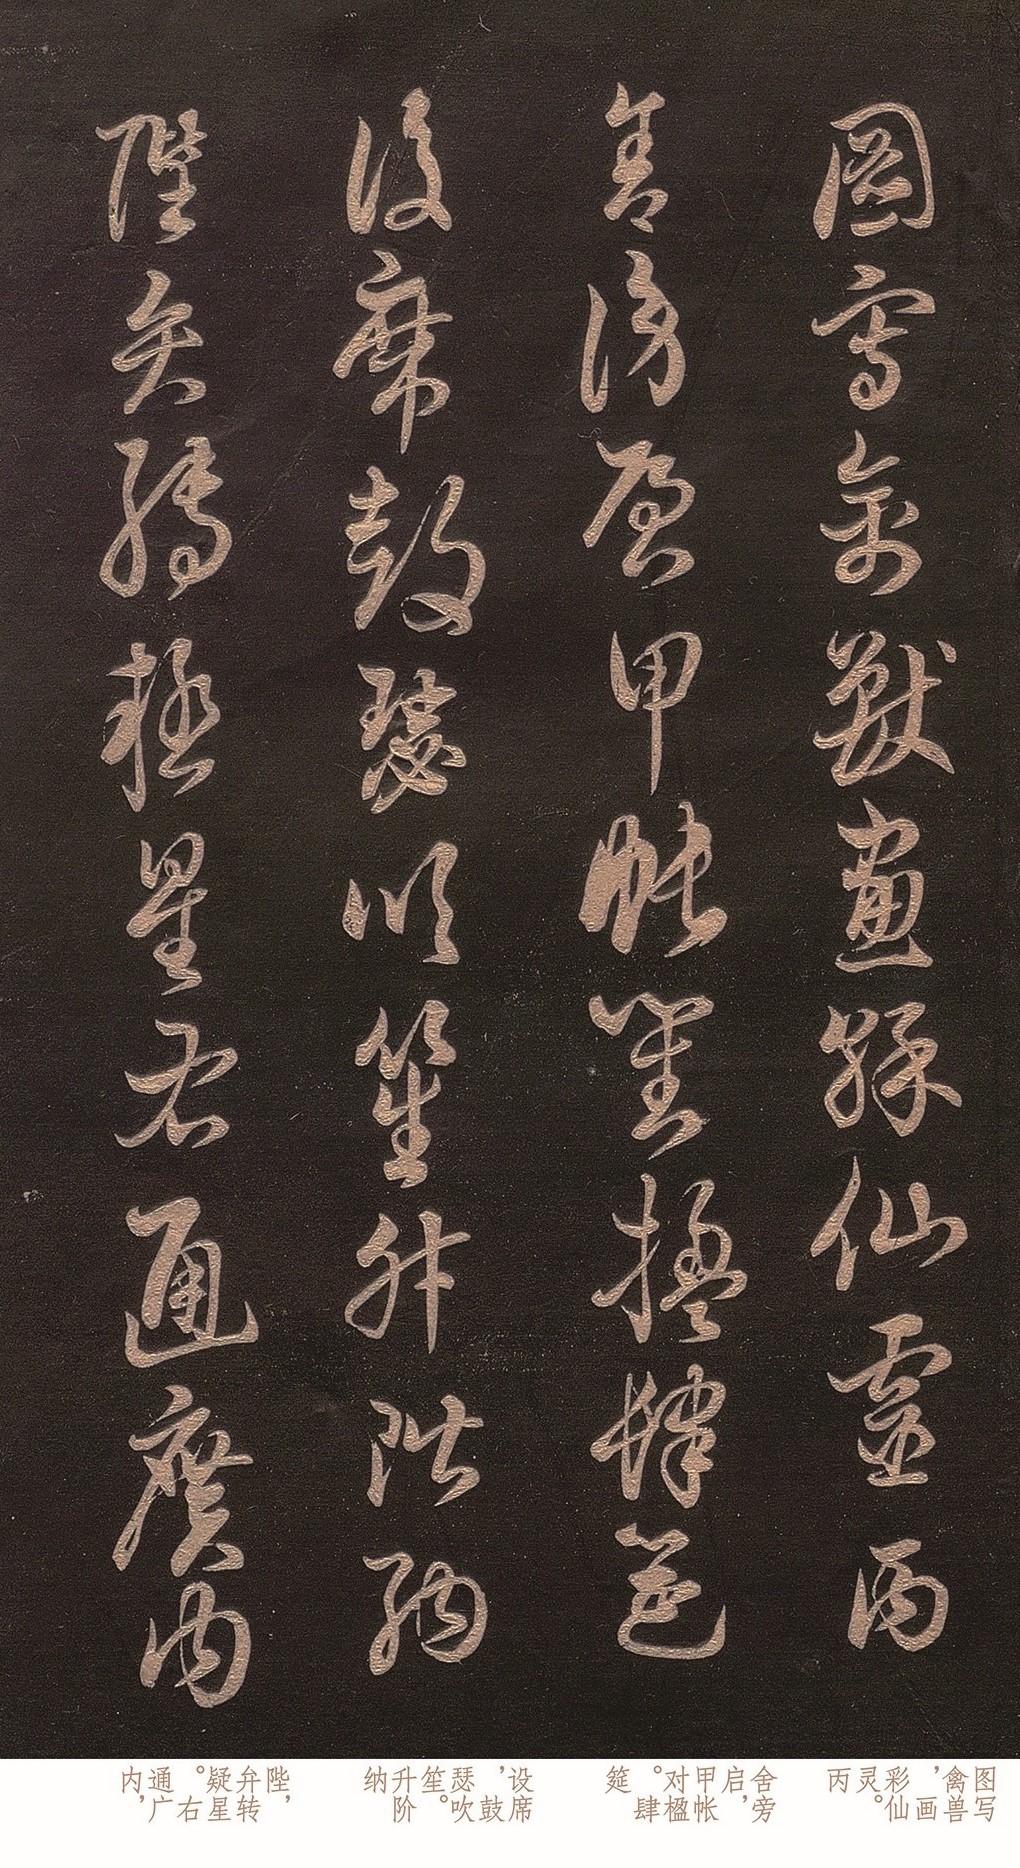 圖寫禽獸畫綵仙靈丙
舍傍啓甲帳對楹肆筵
設席鼓瑟吹笙升階納
陛弁轉疑星右通廣內
图写禽兽，画彩仙灵。丙
舍旁启，甲帐对楹。肆筵
设席，鼓瑟吹笙。升阶纳
陛，弁转疑星。右通广内，